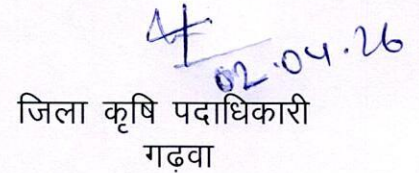 02.04.26
जिला कृषि पदाधिकारी
गढ़वा